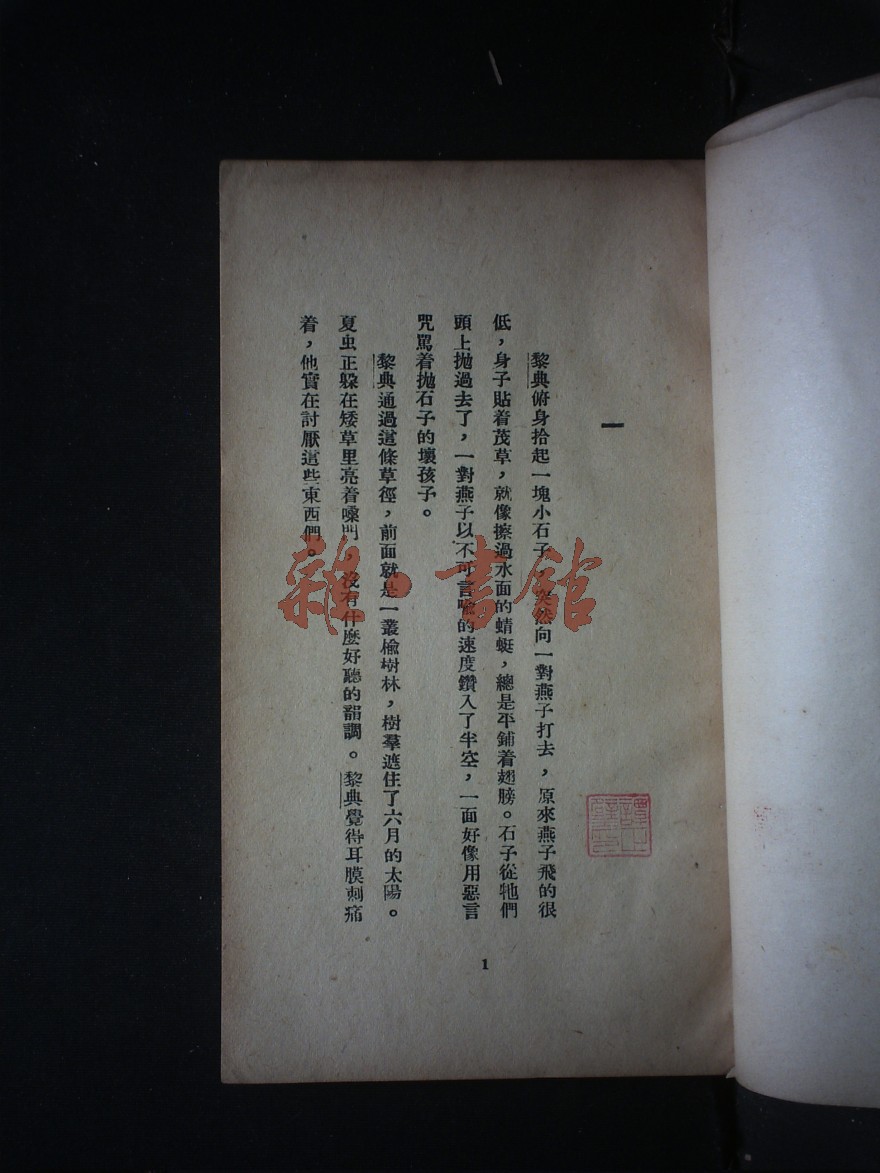 一
黎典俯身拾起一塊小石子，突然向一對燕子打去，原來燕子飛的很
低，身子貼着茂草，就像擦過水面的蜻蜓，總是平鋪着翅膀。石子從牠們
頭上拋過去了，一對燕子以不可言喻的速度鑽入了半空，一面好像用惡言
咒駡着拋石子的壞孩子。
黎典通過這條草徑，前面就是一叢榆樹林，樹羣遮住了六月的太陽。
夏虫正躲在矮草里亮着嗓門，沒有什麼好聽的韶調。黎典覺得耳膜刺痛
着，他實在討厭這些東西們。
1
雜·書館